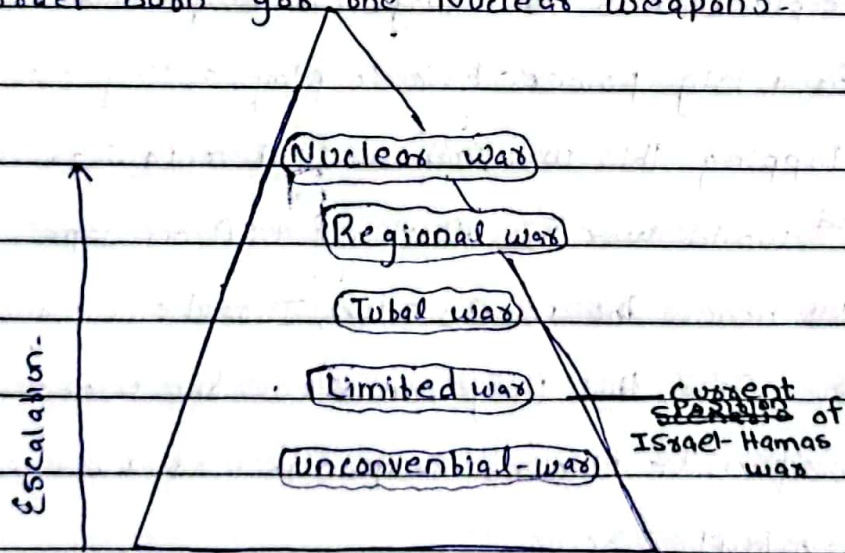 Nuclear weapons-
Nuclear war
Regional war
Total war
Limited war
unconvential-war
Escalation-
current
position of
Israel-Hamas
war